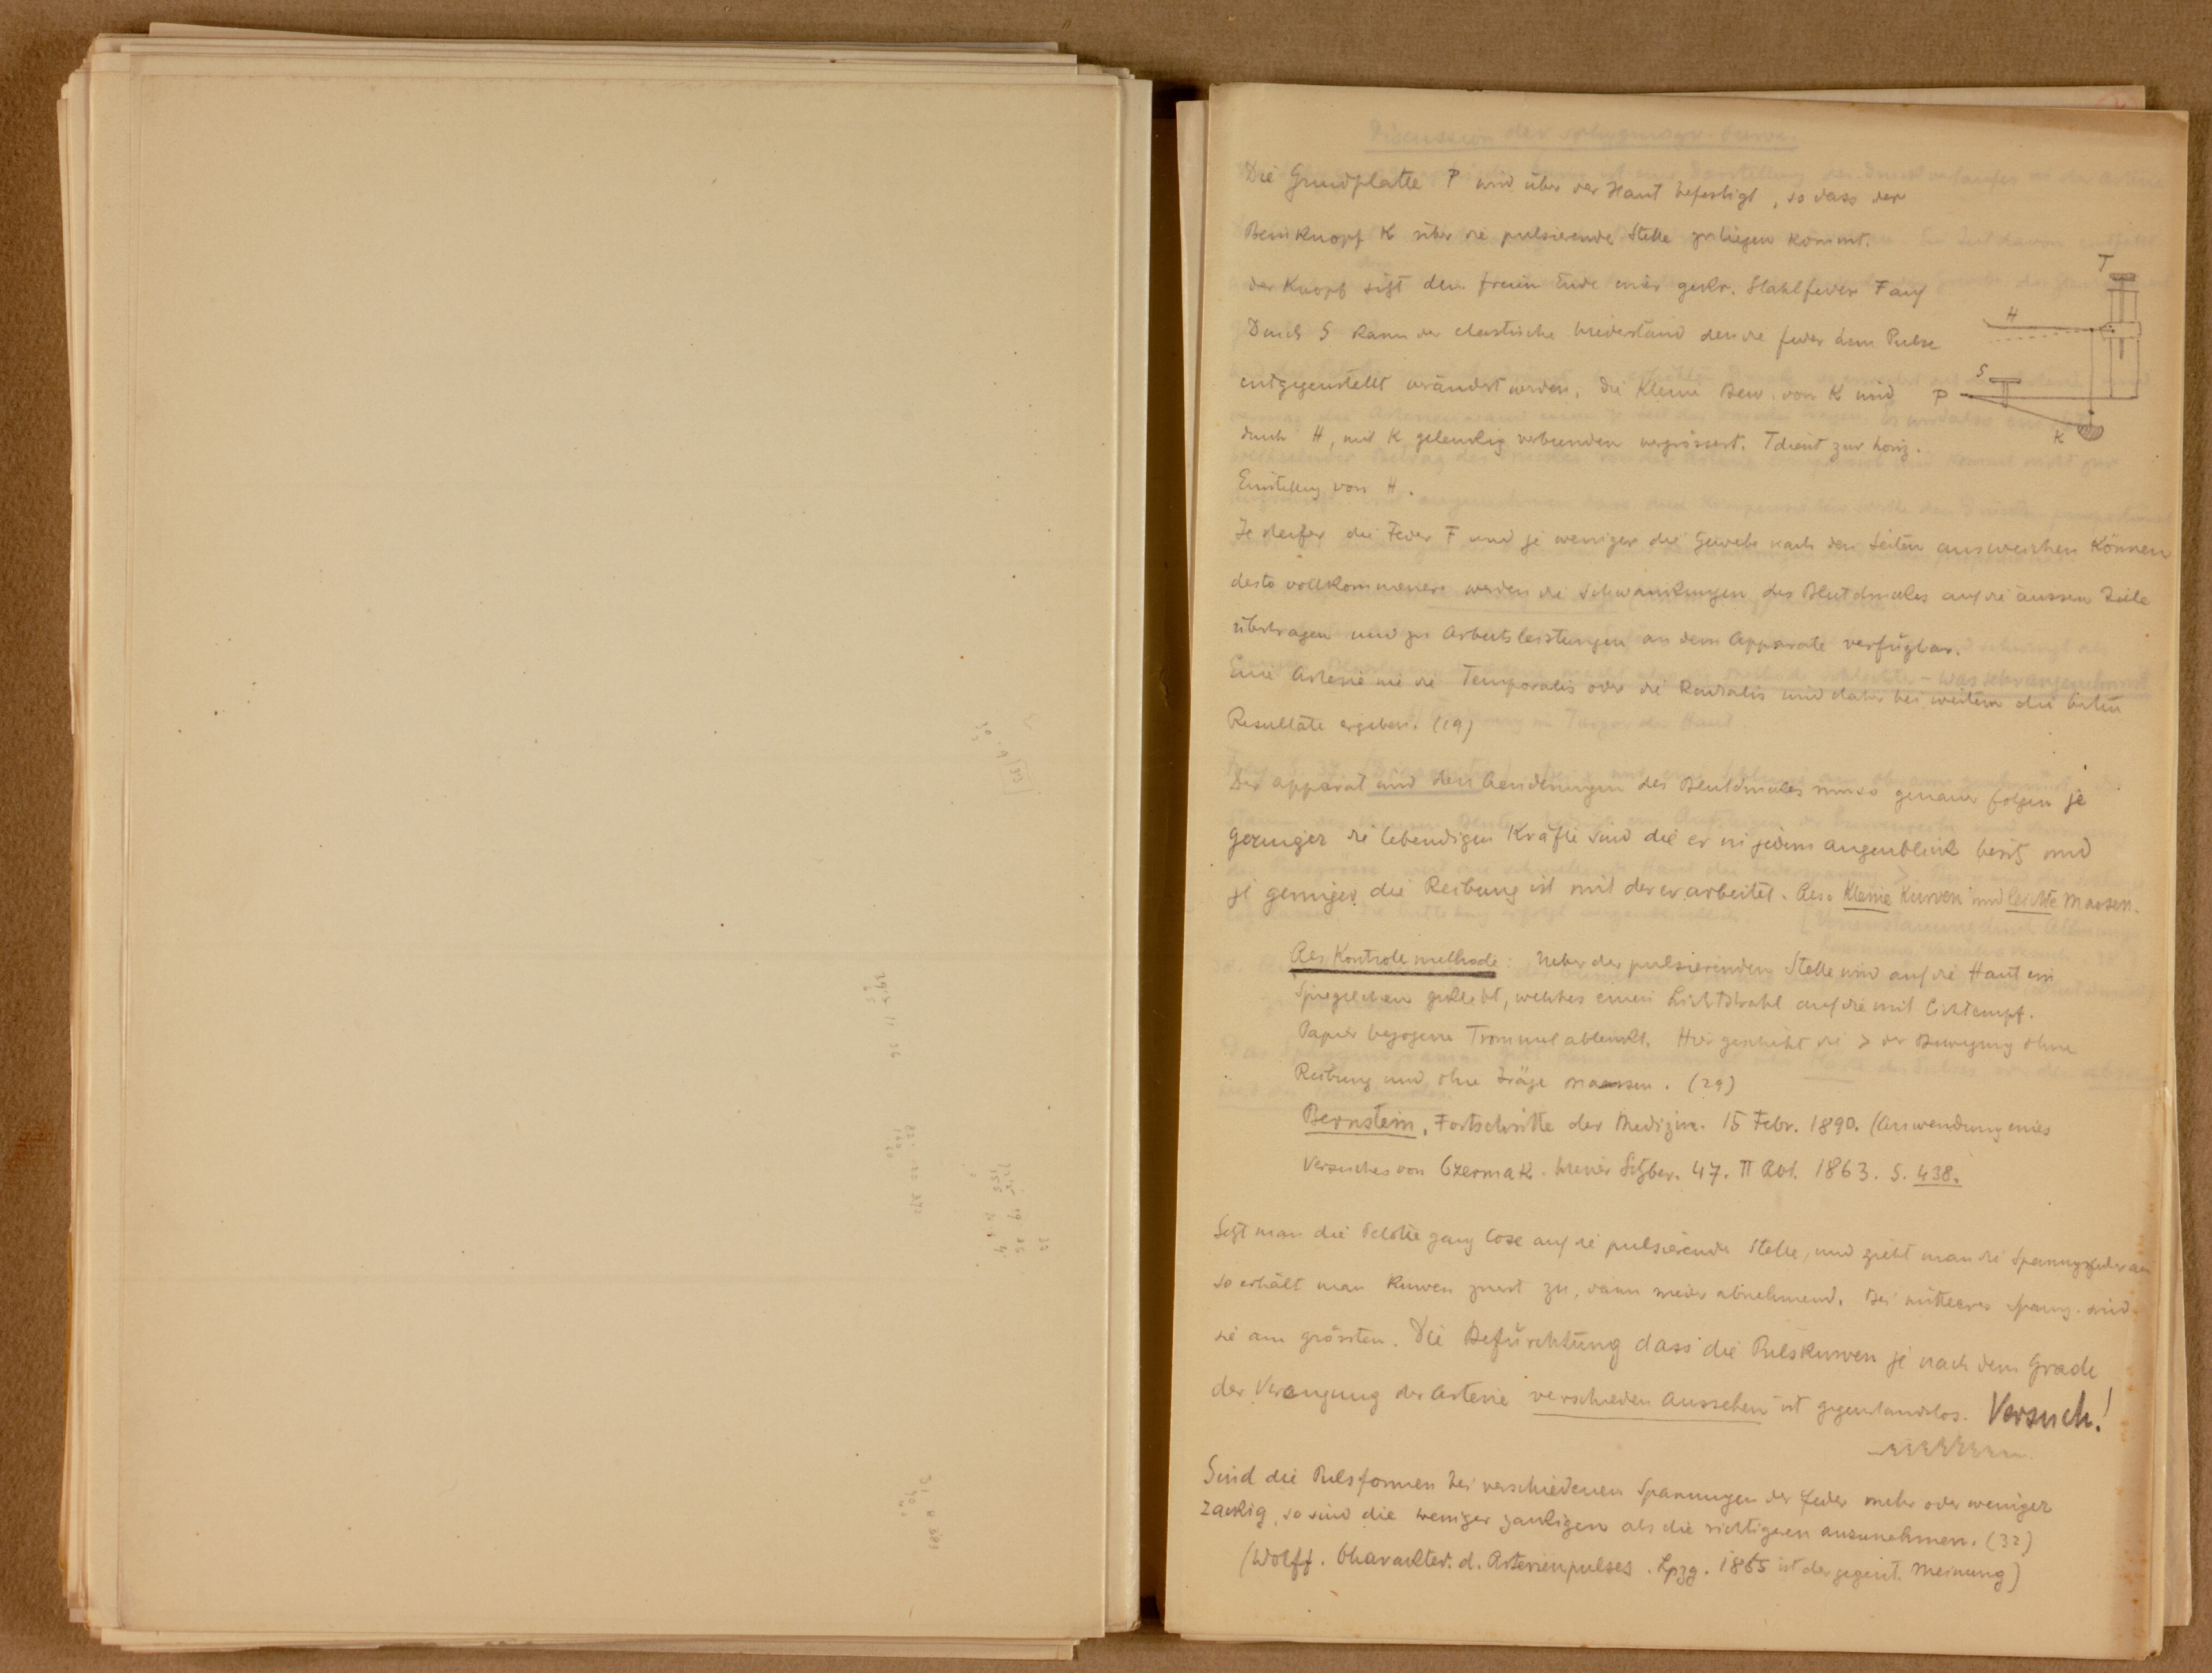 Die Grundplatte P wird über der Haut befestigt, so dass der
Beinknopf K über die pulsierende Stelle zu liegen kommt.
der Knopf sitzt dem freien Ende einer gekr. Stahlfeder F auf
Durch S kann der elastische Wiederstand den die Feder dem Pulse
entgegenstellt verändert werden, die kleine Bew. von K wird
durch H, mit K gelenkig verbunden vergrössert. T dient zur horiz.
Einstellung von H.
T
H
S
P
K
Je steifer die Feder F und je weniger die Gewebe nach den Seiten ausweichen können
desto vollkommener werden die Schwankungen des Blutdruckes auf die äussern Teile
übertragen und zu Arbeitsleistungen an dem Apparate verfügbar.
Eine Arterie wie die Temporalis oder die Radialis wird daher bei weitem die besten
Resultate ergeben. (19)
Der Apparat wird den Aenderungen des Blutdruckes umso genauer folgen je
geringer die lebendigen Kräfte sind die er in jedem Augenblick besitzt und
je geringer die Reibung ist mit der er arbeitet. Also Kleine Kurven und leichte Massen.
Als Kontrollmethode: Ueber der pulsierenden Stelle wird auf die Haut ein
Spiegelchen geklebt, welches einen Lichtstrahl auf die mit lichtempf.
Papier bezogene Trommel ablenkt. Hier geschieht die > der Bewegung ohne
Reibung und ohne träge Massen. (29)
Bernstein, Fortschritte der Medizin. 15 Febr. 1890. (Anwendung eines
Versuches von Czermak. Wiener Sitzber. 47. II Abt. 1863. S. 438.
Setzt man die Pelotte ganz lose auf die pulsierende Stelle, und zieht man die Spannungsfeder an
so erhält man Kurven zuerst zu, dann wieder abnehmend. Bei mittlerer Spang. sind
sie am grössten. Die Befürchtung dass die Pulskurven je nach dem Grade
der Verengung der Arterie verschieden aussehen ist gegenstandslos. Versuch!
Sind die Pulsformen bei verschiedenen Spannungen der Feder mehr oder weniger
zackig, so sind die weniger zackigen als die richtigeren anzunehmen. (32)
(Wolff. Charakter. d. Arterienpulses. Lpzg. 1865 ist der gegent. Meinung)